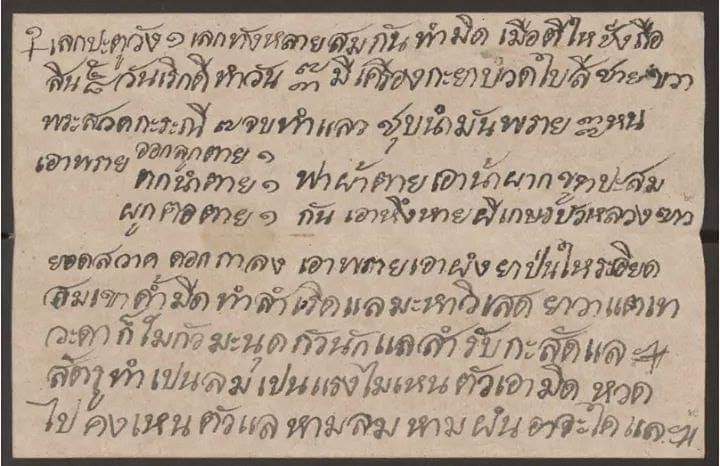 เลกปะตูวัง ๑ เลกทังหลายสมกันทำมิด เมือตีให ชังถือ
สิน วันเริกดีทำวัน มี เครืองกะยาบวดใบสี ชาย ขวา
พระสวดกะระณี ๗ จบทำแลว ชุบนำมันพราย หน
เอาพราย ออกลูกตาย ๑
ตกนำตาย ๑ ฟาผ่าตาย เอานำผาก ปะสม
ผูกตอตาย ๑ กัน เอาหิงหายผีเกษรบัวหลวงขาว
ยอดสวาด ดอกกาลง เอาพรายเอาผงยาปนใหระอียด
สมเขาดำมีดทำสำเรีดแลมะหาวิเสด ยาวาแตเท
วะดา ก็ไมกัวมะนุดกัวนักแลสำรับกะสัดแล
สัตรูทำเปนลมเปนแรงไมเหนตัวเอามิดหวด
ไป คงเหนตัวแล หามลม หามฝน ใดแล